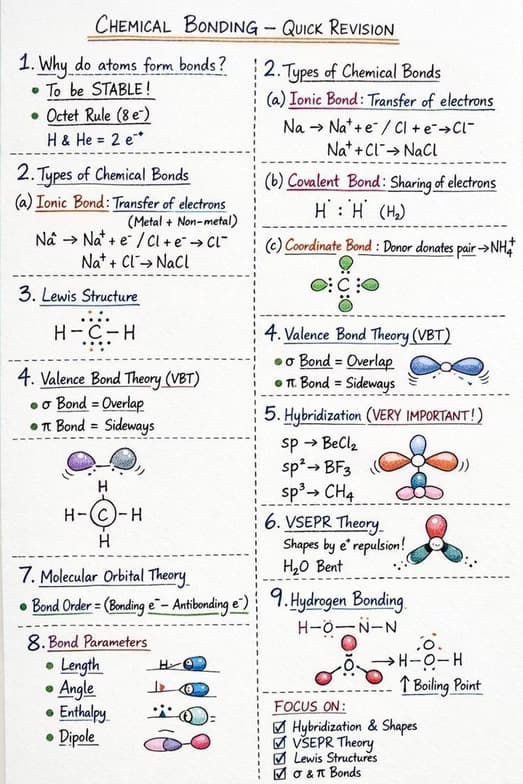 CHEMICAL BONDING – QUICK REVISION
1. Why do atoms form bonds?
• To be STABLE!
• Octet Rule (8 e⁻)
H & He = 2 e⁻⁺
2. Types of Chemical Bonds
(a) Ionic Bond: Transfer of electrons
(Metal + Non-metal)
Na → Na⁺ + e⁻ / Cl + e⁻ → Cl⁻
Na⁺ + Cl⁻ → NaCl
3. Lewis Structure
H – C – H
4. Valence Bond Theory (VBT)
• σ Bond = Overlap
• π Bond = Sideways
H
H – C – H
H
7. Molecular Orbital Theory
• Bond Order = (Bonding e⁻ – Antibonding e⁻)
8. Bond Parameters
• Length
H
• Angle
• Enthalpy
• Dipole
2. Types of Chemical Bonds
(a) Ionic Bond: Transfer of electrons
Na → Na⁺ + e⁻ / Cl + e⁻ → Cl⁻
Na⁺ + Cl⁻ → NaCl
(b) Covalent Bond: Sharing of electrons
H : H (H₂)
(c) Coordinate Bond: Donor donates pair → NH₄⁺
C
4. Valence Bond Theory (VBT)
• σ Bond = Overlap
• π Bond = Sideways
5. Hybridization (VERY IMPORTANT!)
sp → BeCl₂
sp² → BF₃
sp³ → CH₄
6. VSEPR Theory
Shapes by e⁺ repulsion!
H₂O Bent
9. Hydrogen Bonding
H – O – N – N
O
O → H – O – H
↑ Boiling Point
FOCUS ON:
☑ Hybridization & Shapes
☑ VSEPR Theory
☑ Lewis Structures
☑ σ & π Bonds